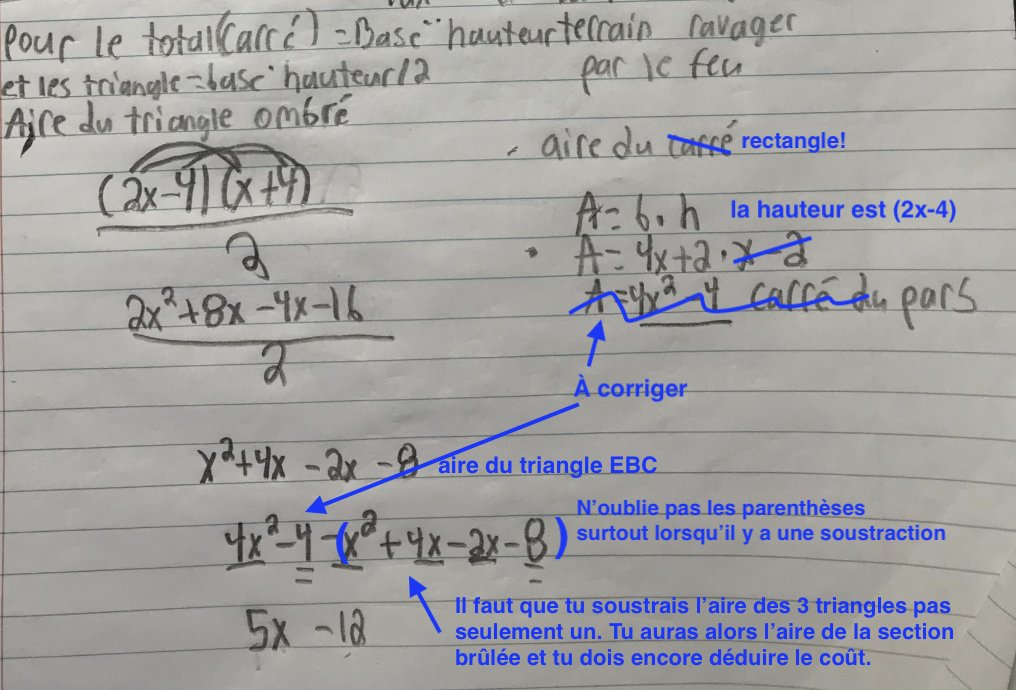 Pour le total(carré) = Base·hauteur
et les triangle = base·hauteur/2
Aire du triangle ombré
(2x-4)(x+4)
2
2x²+8x-4x-16
2
terrain ravager
par le feu
aire du carré rectangle!
A = b·h la hauteur est (2x-4)
A = 4x+2·x-2
A = 4x²-4 carré du pars
À corriger
x²+4x-2x-8 aire du triangle EBC
4x²-4-(x²+4x-2x-8)
N'oublie pas les parenthèses
surtout lorsqu'il y a une soustraction
5x-12
Il faut que tu soustrais l'aire des 3 triangles pas
seulement un. Tu auras alors l'aire de la section
brûlée et tu dois encore déduire le coût.